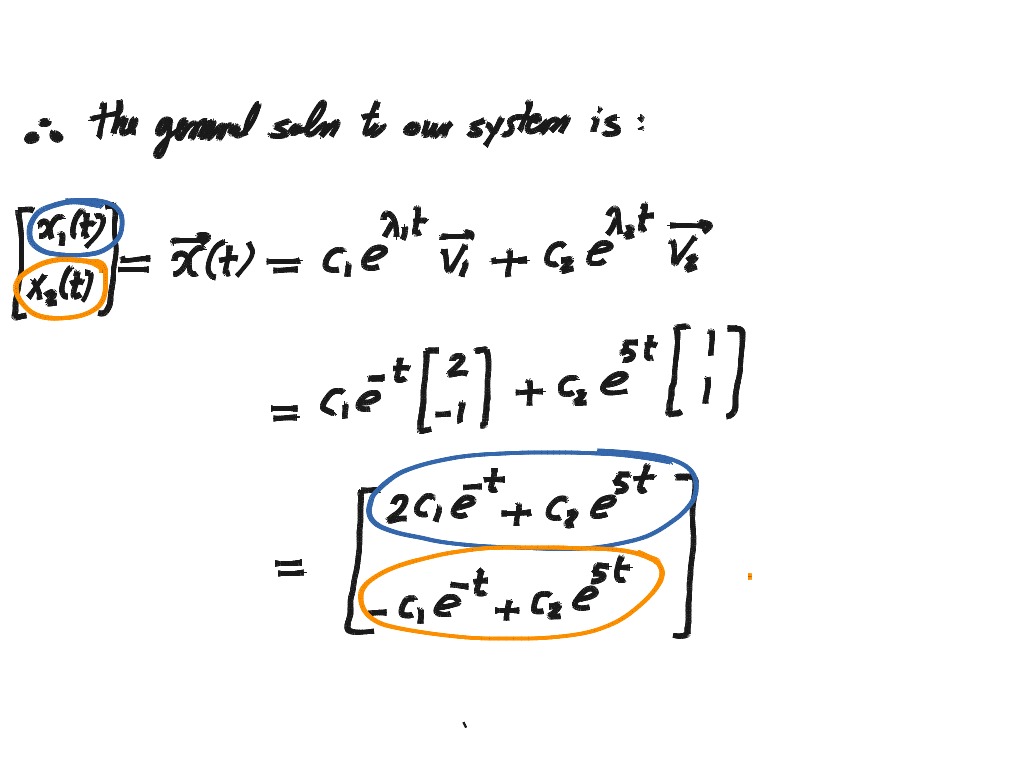 ∴ the general soln to our system is :
[x₁(t) x₂(t)] = x⃗(t) = c₁ e^{λ₁t} v⃗₁ + c₂ e^{λ₂t} v⃗₂
= c₁ e^{-t} [2 -1] + c₂ e^{5t} [1 1]
= [2c₁ e^{-t} + c₂ e^{5t}
-c₁ e^{-t} + c₂ e^{5t}]